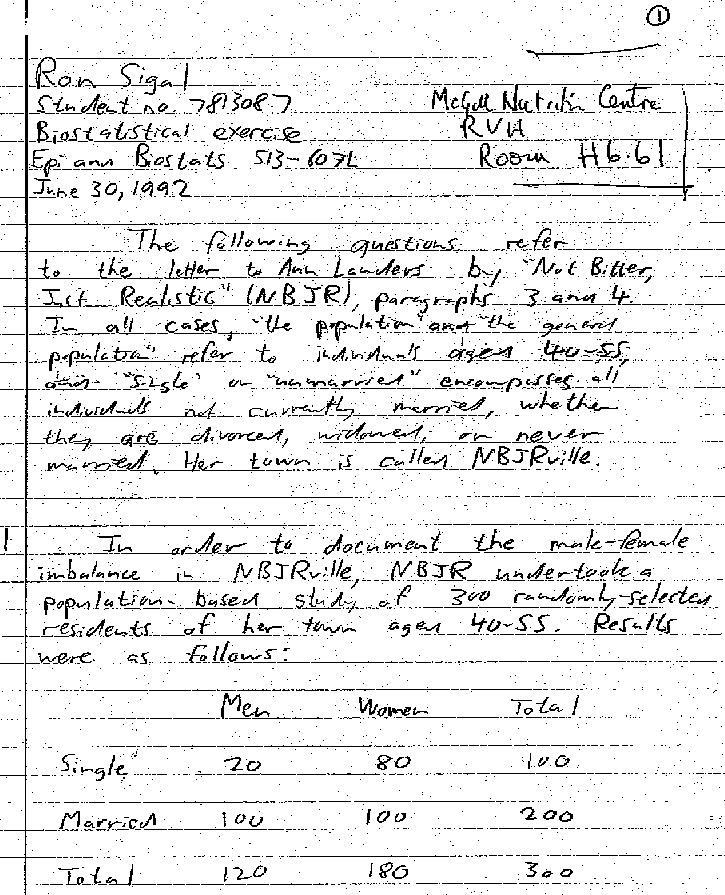 ①
Ron Sigal
Student no. 7813087
Biostatistical exercise
Epi ann Biostats 513-607L
June 30, 1992
McGill Nutritin Centre
RVH
Room H6.61
The following questions refer
to the letter to Ann Landers by "Not Bitter,
Just Realistic" (NBJR), paragraphs 3 and 4.
In all cases, "the population" and "the general
population" refer to individuals aged 40-55,
"single" or "unmarried" encompasses all
individuals not currently married, whether
they are divorced, widowed, or never
married. Her town is called NBJRville.
1 In order to document the male-female
imbalance in NBJRville, NBJR undertook a
population-based study of 300 randomly-selected
residents of her town aged 40-55. Results
were as follows:
Men Women Total
Single 20 80 100
Married 100 100 200
Total 120 180 300